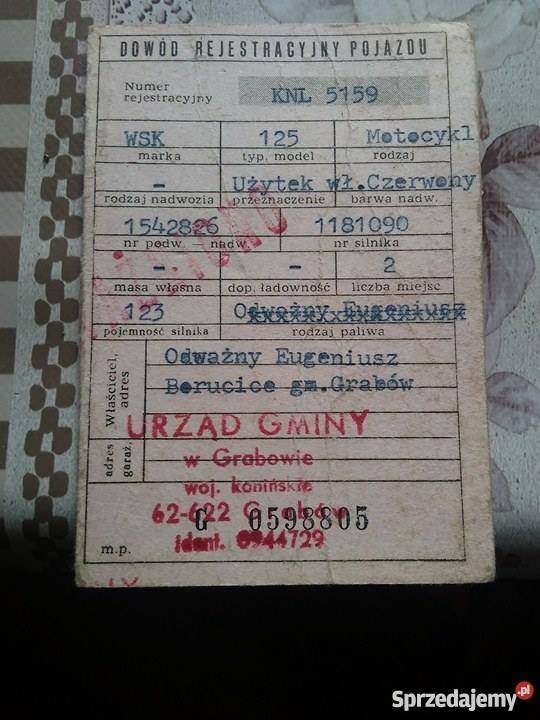 DOWÓD REJESTRACYJNY POJAZDU
Numer rejestracyjny KNL 5159
WSK 125 Motocykl
marka typ, model rodzaj
- Użytek wł. Czerwony
rodzaj nadwozia przeznaczenie barwa nadw.
1542826 1181090
nr podw. nadw. nr silnika
- - 2
masa własna dop. ładowność liczba miejsc
123 Odważny Eugeniusz
pojemność silnika rodzaj paliwa
Właściciel, adres
Odważny Eugeniusz
Borucice gm.Grabów
adres garaż.
URZĄD GMINY
w Grabowie
woj. konińskie
62-622 Grabów
G 0598805
ident. 0944729
m.p.
Sprzedajemy.pl